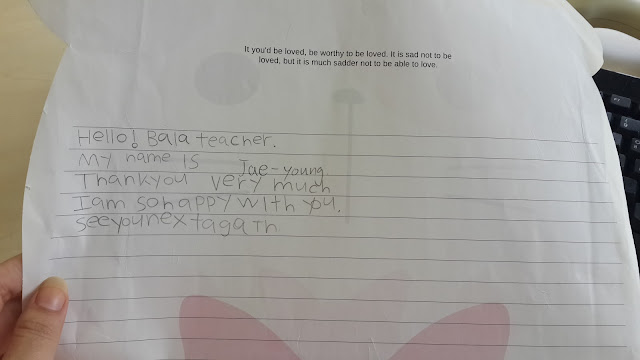 It you'd be loved, be worthy to be loved. It is sad not to be
loved, but it is much sadder not to be able to love.
Hello! Bala teacher.
My name is Jae-young
Thankyou very much
I am so happy with you.
seeyounextagain